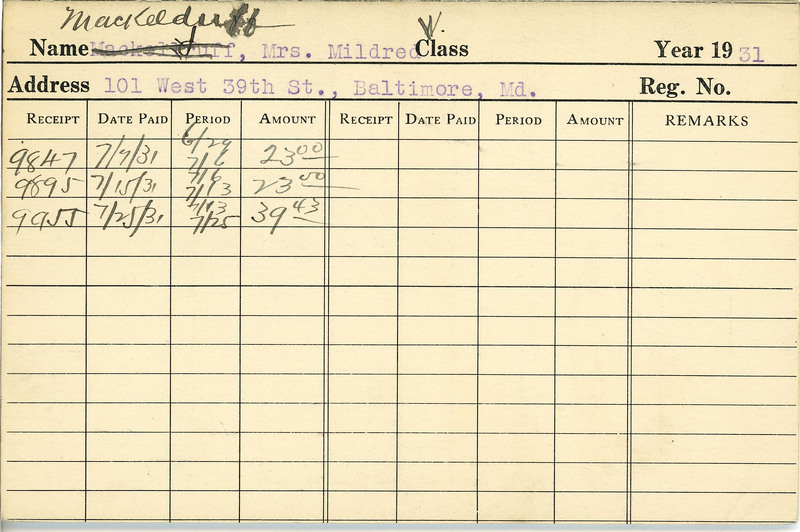 Mackelduff
Name Mackelduff, Mrs. Mildred V. Class Year 1931
Address 101 West 39th St., Baltimore, Md. Reg. No.
RECEIPT DATE PAID PERIOD AMOUNT RECEIPT DATE PAID PERIOD AMOUNT REMARKS
9847 7/7/31 6/29 7/6 23 00
9895 7/15/31 7/6 7/13 23 00
9955 7/25/31 7/13 7/25 39 43